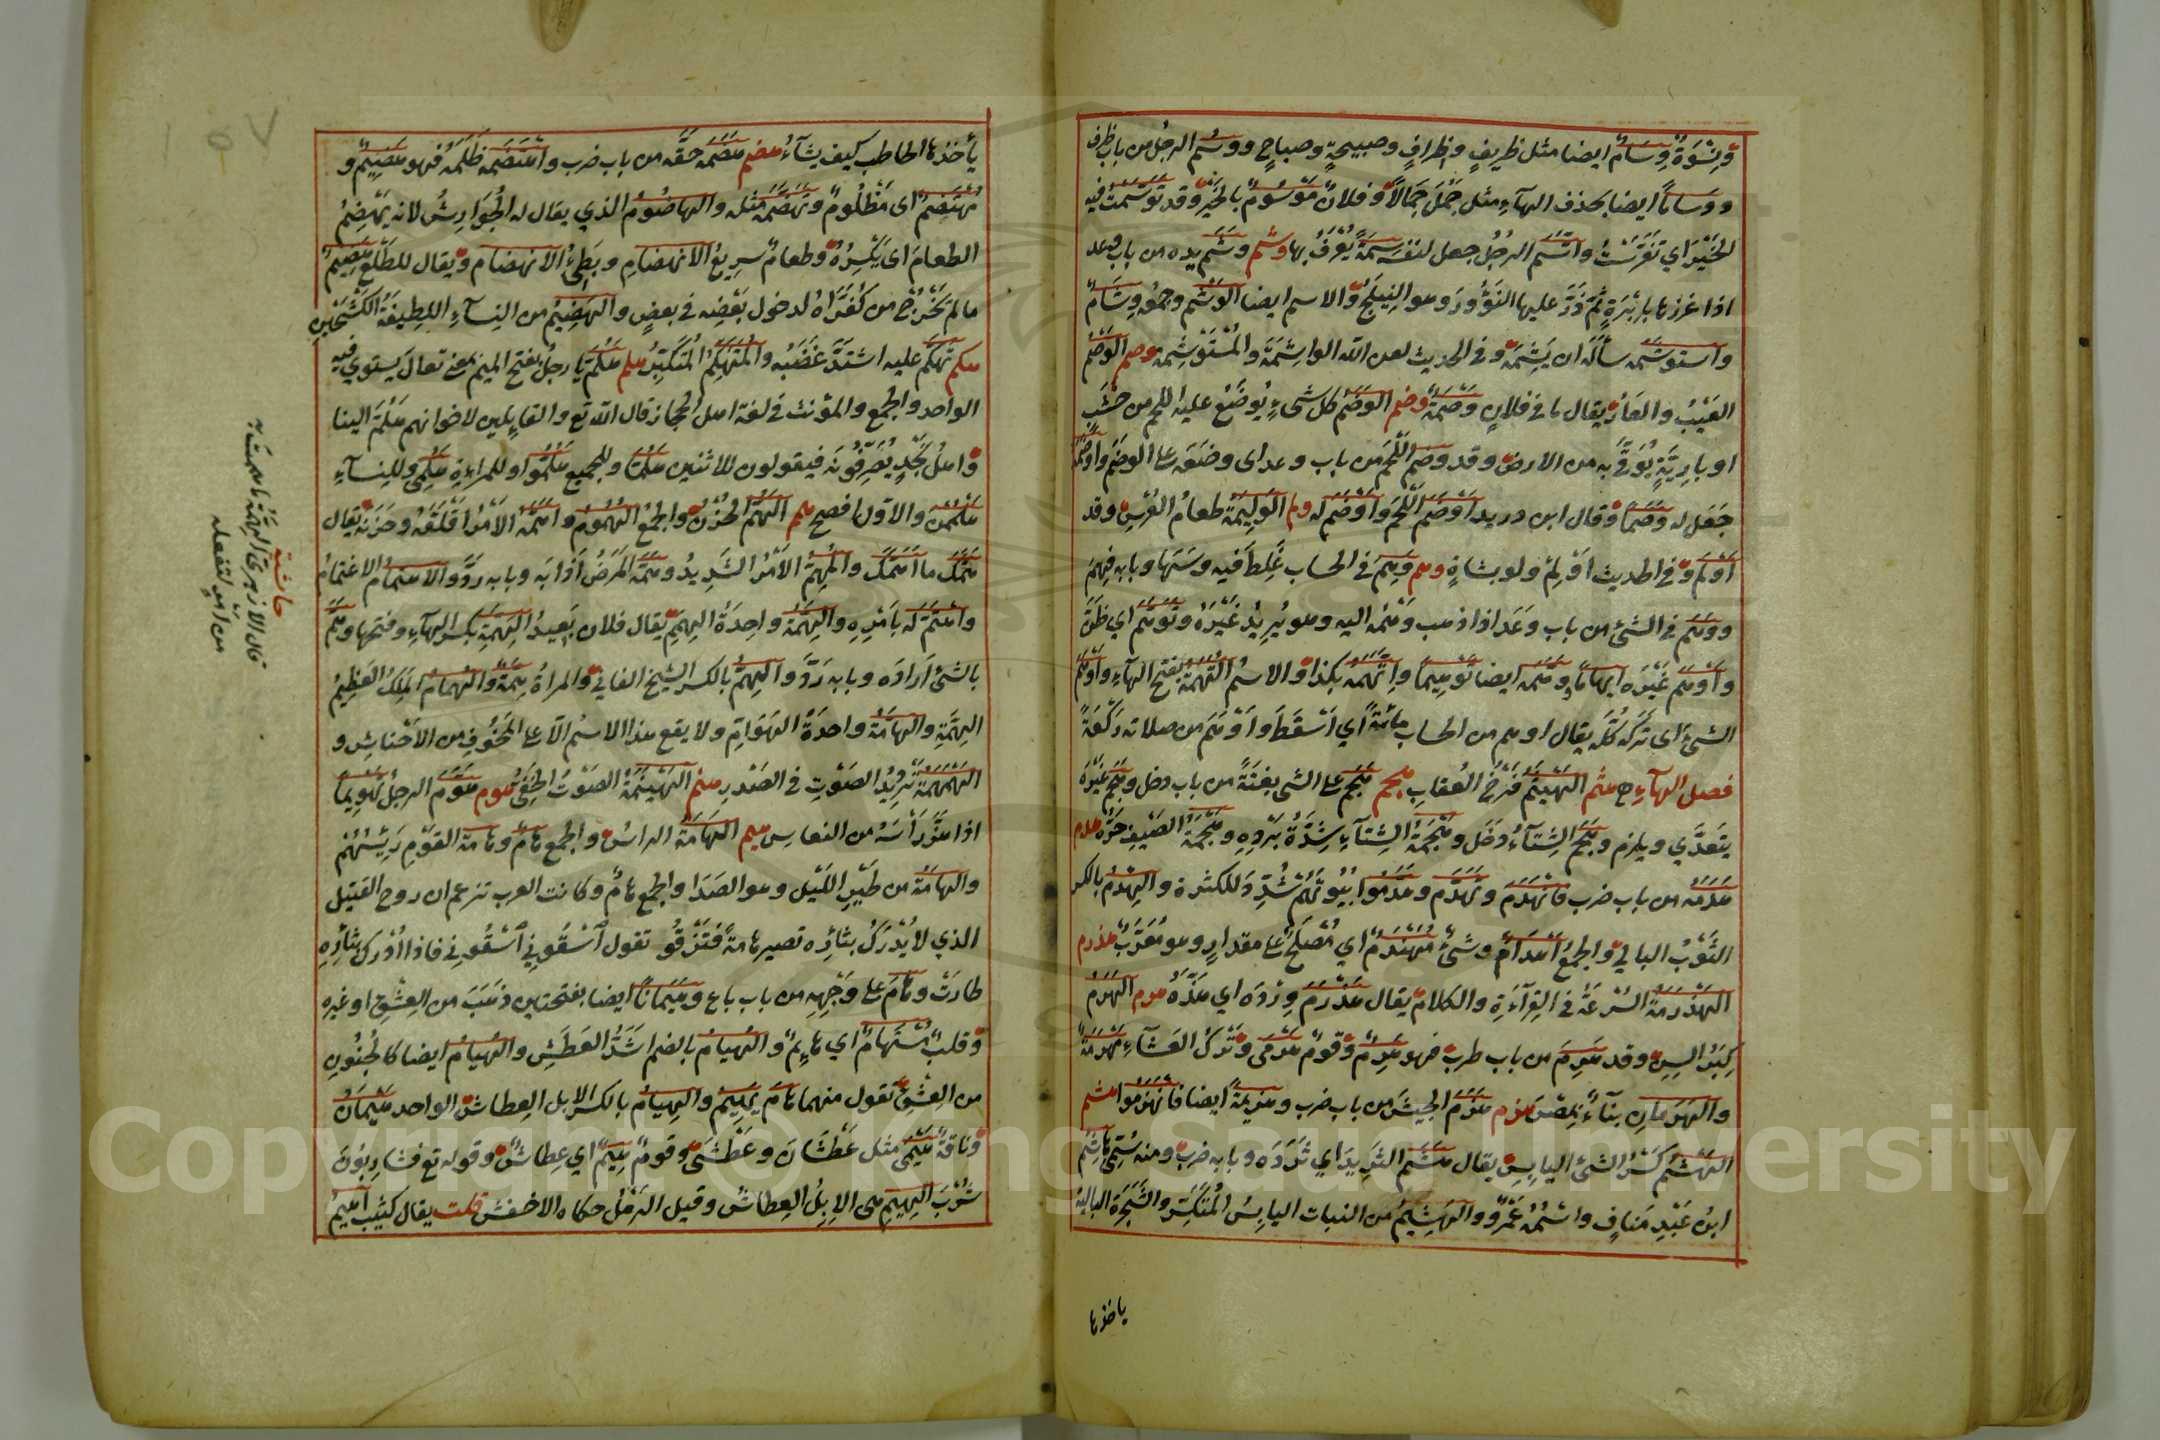 ونِسْوَةٌ وِسَامٌ ايضا مثل ظريفٍ وظِرافٍ وصبيحةٍ وصباحٍ ووسُم الرجُل من باب ظرف
ووَسَامًا ايضا بحذف الهآءِ مثل جَمُلَ جَمَالًا وفلانٌ مَوْسُومٌ بالخَيْرِ وقد تَوَسَّمْتُ فيه
الخَيْرَ اي تَفَرَّسْتُ واتَّسَمَ الرجُلُ جعل لنفسه سِمَةً يُعْرَفُ بها وشم وَشَمَ يده من باب وعد
اذا غرزها بإبْرَةٍ ثمَّ ذَرَّ عليها النَّؤُورَ وهو النِيلَجُ والاسم ايضا الوَشْمُ وجمعه وِشَامٌ
واستوشَمه سأَلَهُ ان يَشِمَهُ وفي الحديث لعن الله الواشِمَةَ والمُسْتَوْشِمة وصم الوَصْمُ
العَيْبُ والعَارُ يقال ما في فلانٍ وَصْمَةٌ وضم الوَضَمُ كل شيءٍ يُوضَعُ عليه اللحم من خشَبٍ
او بارِيَّةٍ يُوقَى به من الارض وقد وضَمَ اللَّحْمَ من باب وعد اي وضَعَه على الوضَمِ واَوْضَمَهُ
جَعَل له وَضَمًا وقال ابن دريد اَوْضَمَ اللَّحْمَ واَوْضَم له ولم الوَلِيمَةُ طعامُ العُرْسِ وقد
اَوْلَمَ وفي الحديث اَوْلِمْ ولو بشاةٍ وهم وَهِمَ في الحساب غَلِطَ فيه وسَهَا وبابه فَهِمَ
ووَهَم في الشئ من باب وَعَدَ اذا ذهب وَهْمُه اليه وهو يُرِيدُ غَيْرَهُ وتَوَهَّم اي ظَنَّ
واَوْهَمَ غَيْرَه ايهامًا ووَهَّمه ايضا تَوْهِيمًا واِتَّهَمَه بكذا والاسمُ التُّهَمَةُ بفتح الهآءِ واَوْهَمَ
الشئ اى تَرَكَه كُلَّه يقال اوهم من الحساب مائةً اي اَسْقَطَ واَوْهَمَ من صلاته رَكْعَةً
فصل الهآءِ هثم الهَيْثَمُ فَرْخُ العُقابِ هجم هَجَمَ على الشئ بغتةً من باب دخل وهَجَمَ غَيْرَهُ
يتَعدَّي ويلزم وهَجَمَ الشِتآءُ دَخَلَ وهَجْمَةُ الشِتآءِ شِدَّةُ بَرْدِهِ وهَجْمَةُ الصَيفِ حَرُّهُ هدم
هَدَمَهُ من باب ضرب فانْهَدَمَ وتَهَدَّم وهَدَّمُوا بُيُوتَهُم شُدِّدَ للكثرة والهِدْمُ بالكسر
الثَوْبُ البالي والجمعُ اَهْدَامٌ وشئٌ مُهَنْدَمٌ اي مُصْلَحٌ على مقدارٍ وهو مُعَرَّبٌ هذرم
الهَذْرَمَةُ السُرعَةُ في القِرآءَةِ والكلامِ يقال هَذْرَمَ وِرْدَه اي هَذَّهُ هرم الهَرَمُ
كِبَرُ السِنِّ وقد هَرِمَ من باب طرب فهو هَرِمٌ وقومٌ هَرْمَى وتَرْكُ العَشَآءِ مَهْرَمَةٌ
والهَرَمانِ بنآءٌ بمِصْرَ هزم هَزَمَ الجيشَ من باب ضرب وهَزِيمَةً ايضا فانهَزَمُوا هشم
الهَشْمُ كَسْرُ الشئ اليابسِ يقال هَشَم الثَرِيدَ اي ثَرَدَه وبابه ضرب ومنه سُمِّيَ هاشِمُ
ابنُ عَبْدِ مَنافٍ واسْمُهُ عَمْرٌو والهَشِيمُ من النبات اليابِسُ المُتَكَسِّر والشَجَرَةُ الباليةُ
ياخذها
يأخذها الحاطب كيف يشآءُ هضم هَضَمَهُ حَقَّه من باب ضرب واهْتَضَمَه ظَلَمَهُ فهو هَضِيمٌ و
مُهْتَضَمٌ اى مَظْلُومٌ وتَهَضَّمَهُ مثله والهاضُومُ الذي يقال له الجُوَارِشُ لانه يَهْضِمُ
الطعامَ اى يَكْسِرُهُ وطعامٌ سريعُ الانهضامِ وبَطِئُ الانهضام ويقال للطَلْعِ هَضِيمٌ
ما لم تَخْرُجْ من كُفُرَّاهُ لدخول بَعْضِه في بعضٍ والهَضِيمُ من النِسآءِ اللطِيفَةُ الكَشْحَيْنِ
هكم تَهَكَّمَ عليه اشتدَّ غَضَبُه والمُتَهَكِّمُ المُتَكَبِّرُ هلم هَلُمَّ يا رجلُ بفتح الميم بمعنى تعالَ يستوي فيه
الواحد والجمع والمؤنث في لغة اهل الحجاز قال الله تع والقايلين لاخوانهم هَلُمَّ الينا
واهلُ نَجْدٍ يُصَرِّفُونَه فيقولون للاثنين هَلُمَّا وللجميع هَلُمُّوا وللمراءة هَلُمِّي وللنِسآءِ
هَلْمُمْنَ والاوّلُ افصح همم الهَمُّ الحُزْنُ والجمعُ الهُمُومُ واهَمَّهُ الاَمْرُ اَقْلَقَهُ وحَزَنَه يقال
هَمُّكَ ما اَهَمَّكَ والمُهِمُّ الاَمْرُ الشَدِيدُ وهَمَّهُ المَرَضُ اَذَابَه وبابه ردَّ والاهتمامُ الاغتمامُ
واهْتَمَّ له بأمْرِهِ والهِمَّةُ واحِدَةُ الهِمَمِ يقال فلان بَعِيدُ الهِمَّةِ بكسر الهآءِ وفتحها وهَمَّ
بالشئ اَرَادَه وبابه رَدَّ والهِمُّ بالكسر الشيخ الفاني والمراةُ هِمَّةٌ والهُمَامُ المَلِكُ العَظِيمُ
الهِمَّةِ والهامَّةُ واحدَةُ الهَوَامِّ ولا يقع هذا الاسْم الّا على المَخُوفِ من الاَحْناشِ و
الهَمْهَمَةُ تَرْدِيْدُ الصَوْتِ في الصَدْرِ هنم الهَيْنَمَةُ الصَوْتُ الخَفِيُّ هوم هَوَّمَ الرجلُ تَهْوِيمًا
اذا هَزَّ رَأْسَهُ من النعاس هيم الهَامَةُ الراسُ والجمع هامٌ وهامَة القَوْمِ رَئِيسُهُمْ
والهامَةُ من طَيْرِ اللَيْلِ وهو الصَدَا والجمع هامٌ وكانت العرب تزعم ان روح القتيل
الذي لا يُدْرَكُ بثأرِه تصير هامَةً فتَزْقُو تقول اُسْقُونِي اُسْقُونِي فاذا اُدْرِك بثأرِهِ
طارَتْ وهَامَ على وَجْهِهِ من باب باع وهَيَمانًا ايضا بفتحتين ذهَبَ من العِشْقِ او غيره
وقلبٌ مُسْتَهامٌ اي هائِمٌ والهُيامُ بالضم اَشَدُّ العَطَشِ والهُيامُ ايضا كالجُنُونِ
من العِشْقِ تقول منهما هامَ يَهِيمُ والهِيامُ بالكسر الابل العِطاش الواحد هَيْمانُ
وناقةٌ هَيْمَى مثل عَطْشَانَ وعَطْشَى وقومٌ هِيمٌ اي عِطاشٌ وقوله تع فشاربُونَ
شُرْبَ الهِيمِ هى الاِبِلُ العِطاشُ وقيل الرَمْلُ حكاه الاخفش قلت يقال كثيبٌ اَهْيَمُ
حاشية
قال الازهرى